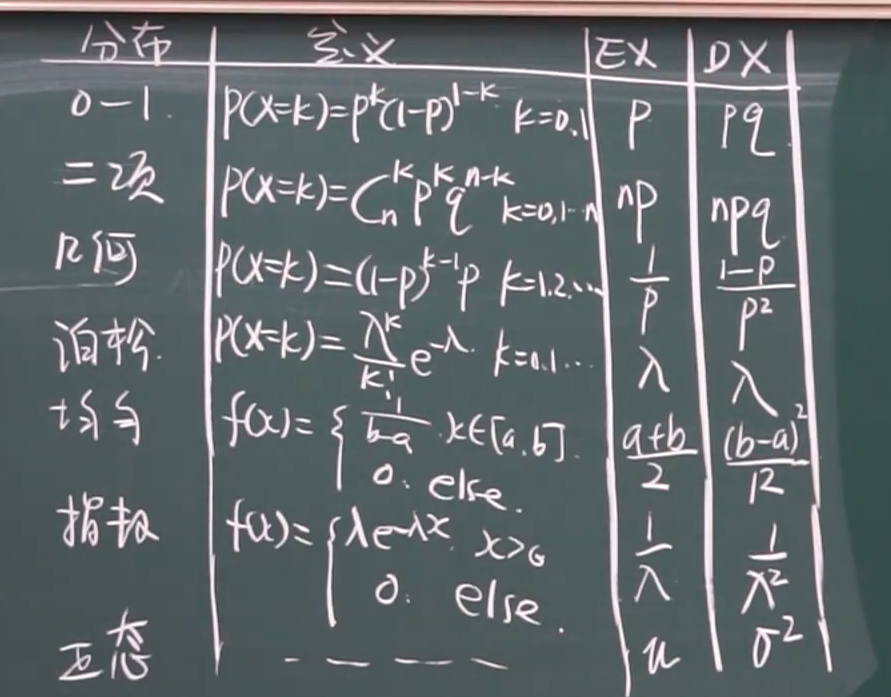 分布 定义 EX DX
0-1. P(X=k)=p^k(1-p)^{1-k} k=0,1 p pq
二项 P(X=k)=C_n^k p^k q^{n-k} k=0,1…n np npq
几何 P(X=k)=(1-p)^{k-1}p k=1.2.… 1/p (1-p)/p^2
泊松. P(X=k)=λ^k/k! e^{-λ}. k=0.1… λ λ
均匀 f(x)={1/(b-a) . x∈[a.b]. (a+b)/2 (b-a)^2/12
0. else.
指数 f(x)={λe^{-λx} x>0 1/λ 1/λ^2
0. else.
正态 - - - - u σ^2